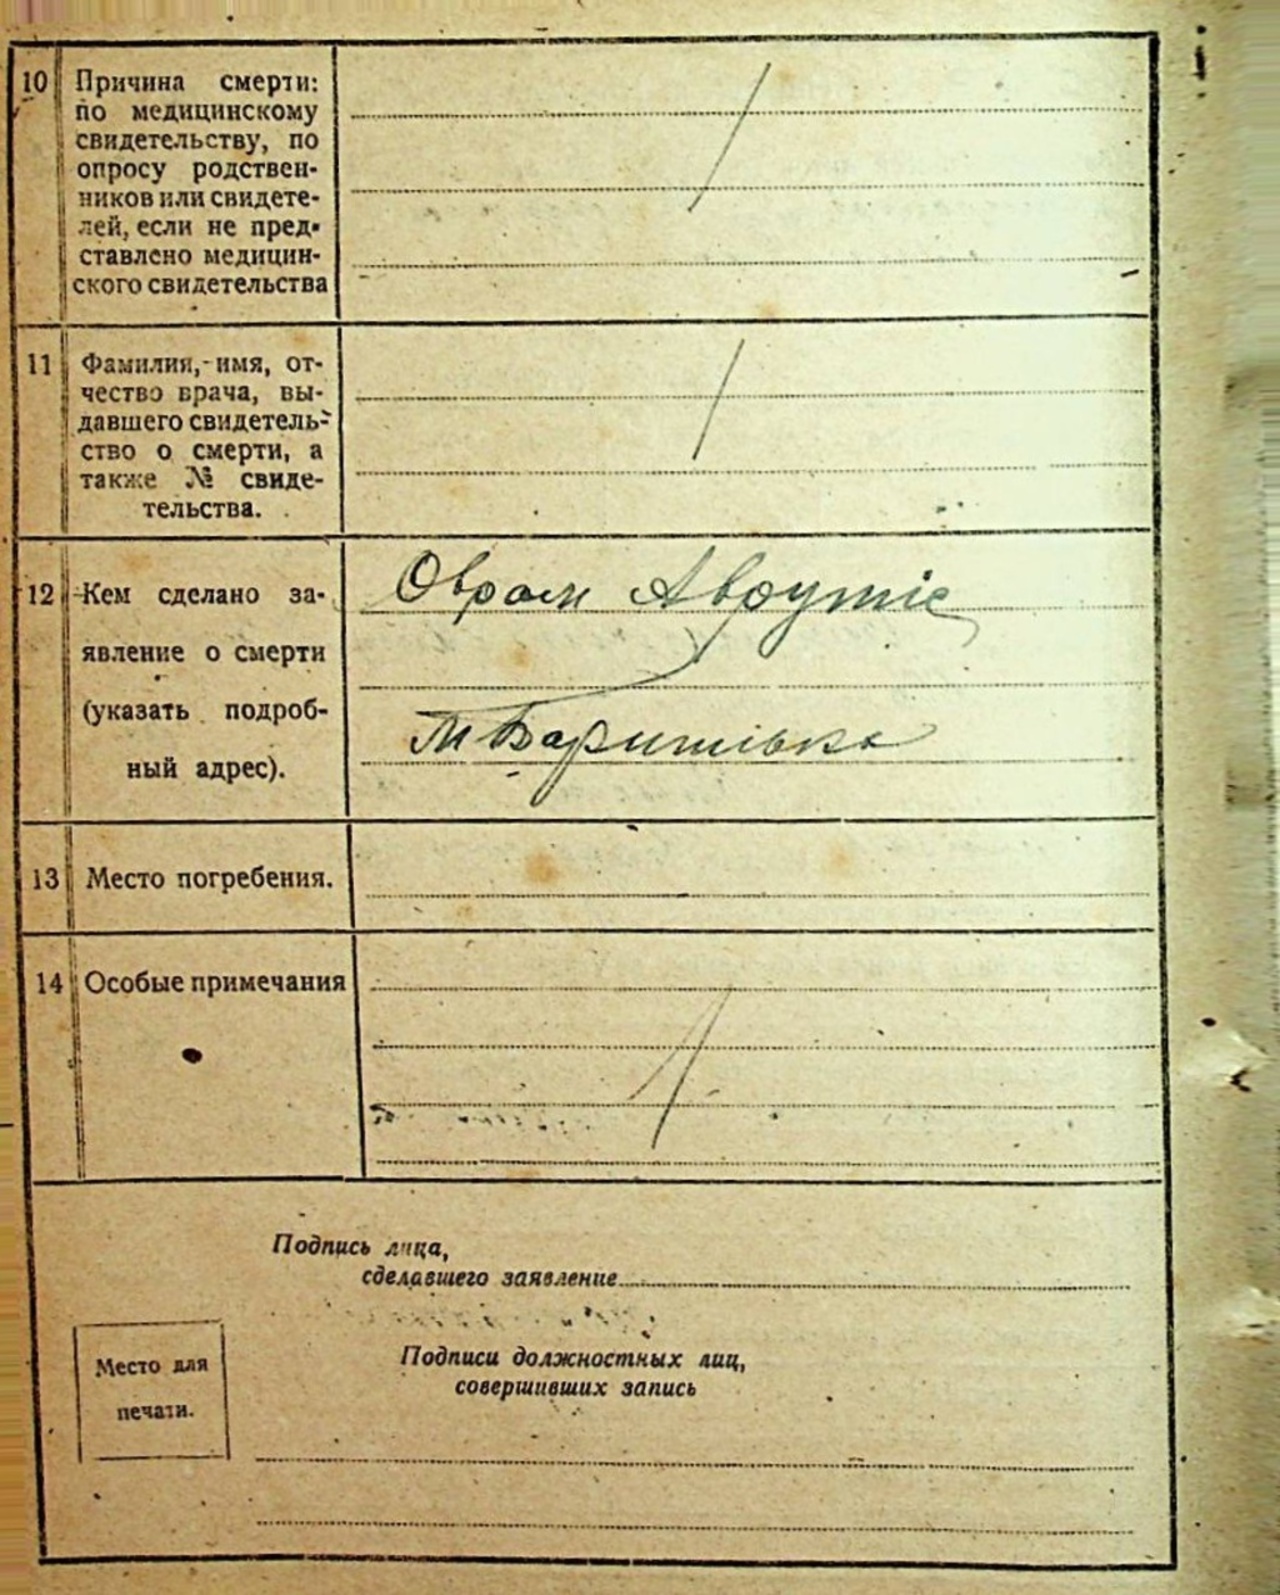 10 Причина смерти:
по медицинскому
свидетельству, по
опросу родствен-
ников или свидете-
лей, если не пред-
ставлено медицин-
ского свидетельства
11 Фамилия, имя, от-
чество врача, вы-
давшего свидетель-
ство о смерти, а
также № свиде-
тельства.
12 Кем сделано за-
явление о смерти
(указать подроб-
ный адрес).
Овром Аврутіс
М Баришівка
13 Место погребения.
14 Особые примечания
Подпись лица,
сделавшего заявление
Подписи должностных лиц,
совершивших запись
Место для
печати.